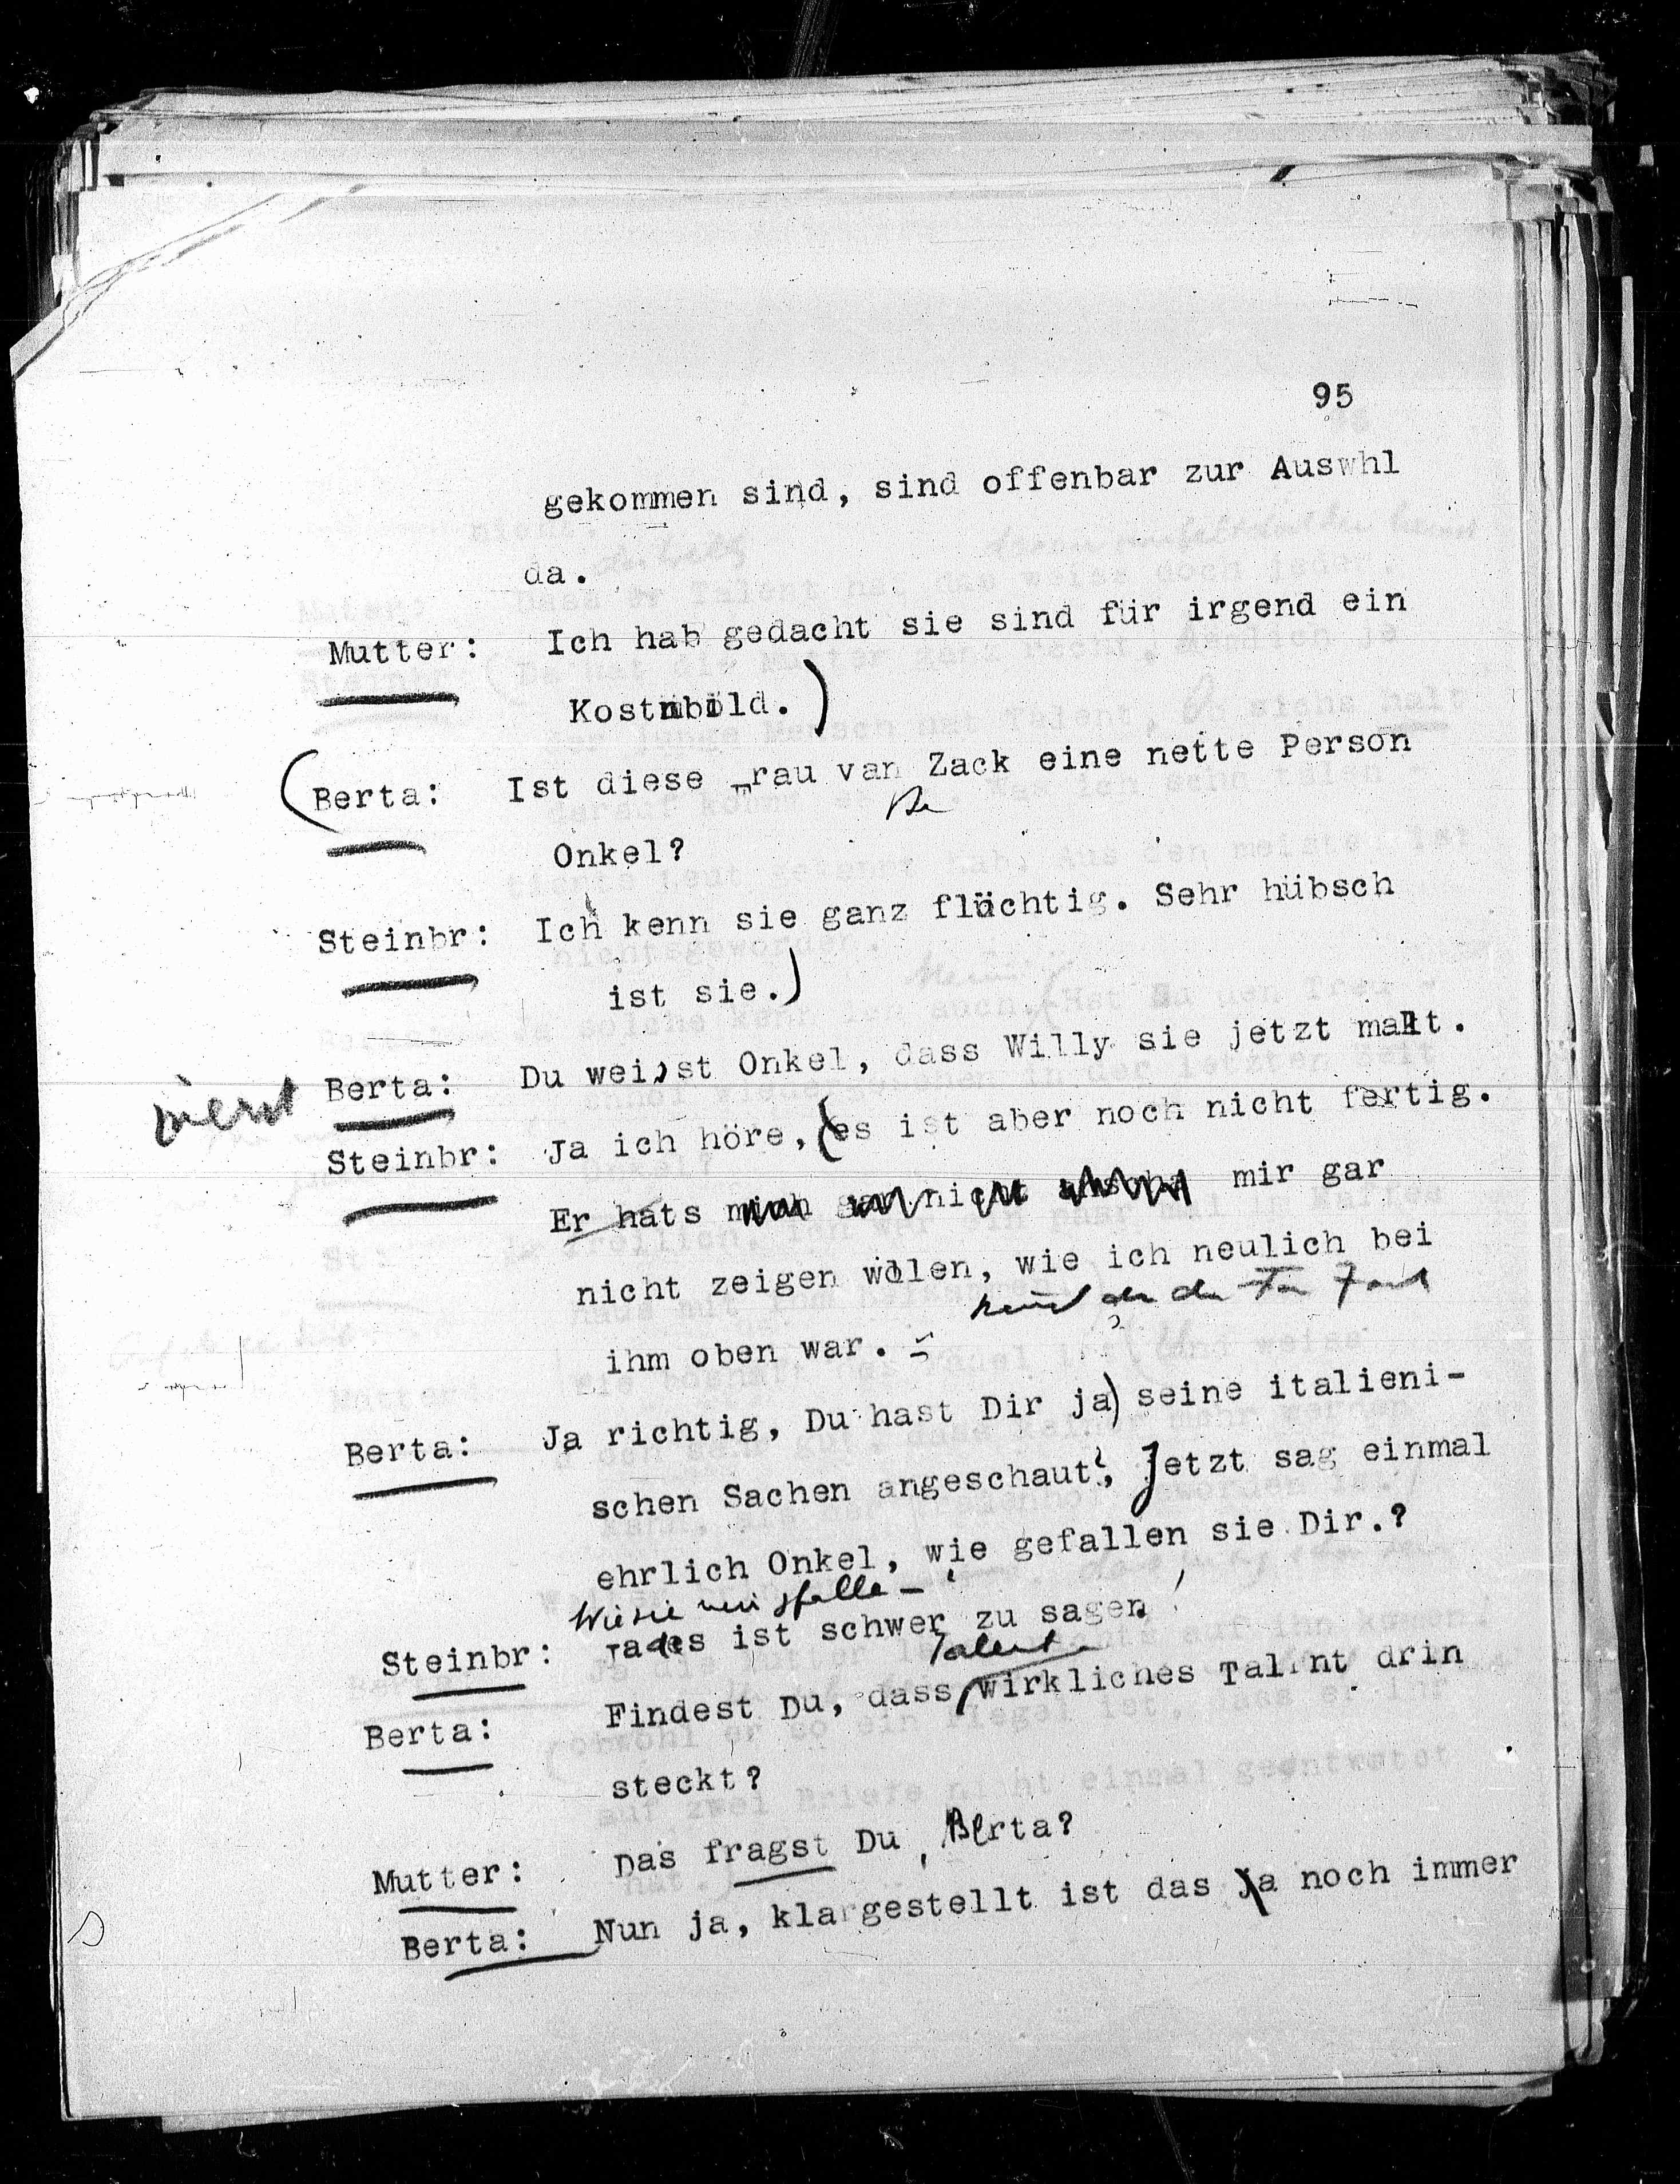 95
gekommen sind, sind offenbar zur Auswhl
da.
Mutter: Ich hab gedacht sie sind für irgend ein
Kostmbild.)
(Berta: Ist diese rau van Zack eine nette Person
Onkel?
Steinbr: Ich kenn sie ganz flüchtig. Sehr hübsch
ist sie.)
Berta: Du weisst Onkel, dass Willy sie jetzt malt.
Steinbr: Ja ich höre, (es ist aber noch nicht fertig.
Er hats mich gar nicht mir gar
nicht zeigen wolen, wie ich neulich bei
ihm oben war.
Berta: Ja richtig, Du hast Dir ja) seine italieni-
schen Sachen angeschaut, Jetzt sag einmal
ehrlich Onkel, wie gefallen sie Dir.?
Wie sie mir gfalle -
Steinbr: Ja des ist schwer zu sagen
Talent
Berta: Findest Du, dass wirkliches Talent drin
steckt?
Mutter: Das fragst Du, Berta?
Berta: Nun ja, klargestellt ist das ja noch immer